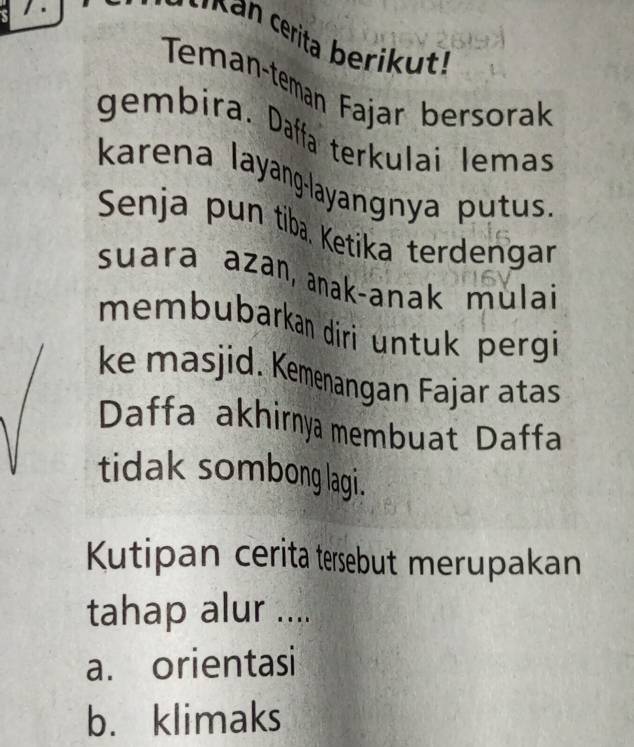 cerita berikut!
Teman-teman Fajar bersorak
gembira. Daffa terkulai lemas
karena layang-layangnya putus.
Senja pun tiba. Ketika terdengar
suara azan, anak-anak mulai
membubarkan diri untuk pergi
ke masjid. Kemenangan Fajar atas
Daffa akhirnya membuat Daffa
tidak sombong lagi.
Kutipan cerita tersebut merupakan
tahap alur ....
a. orientasi
b. klimaks